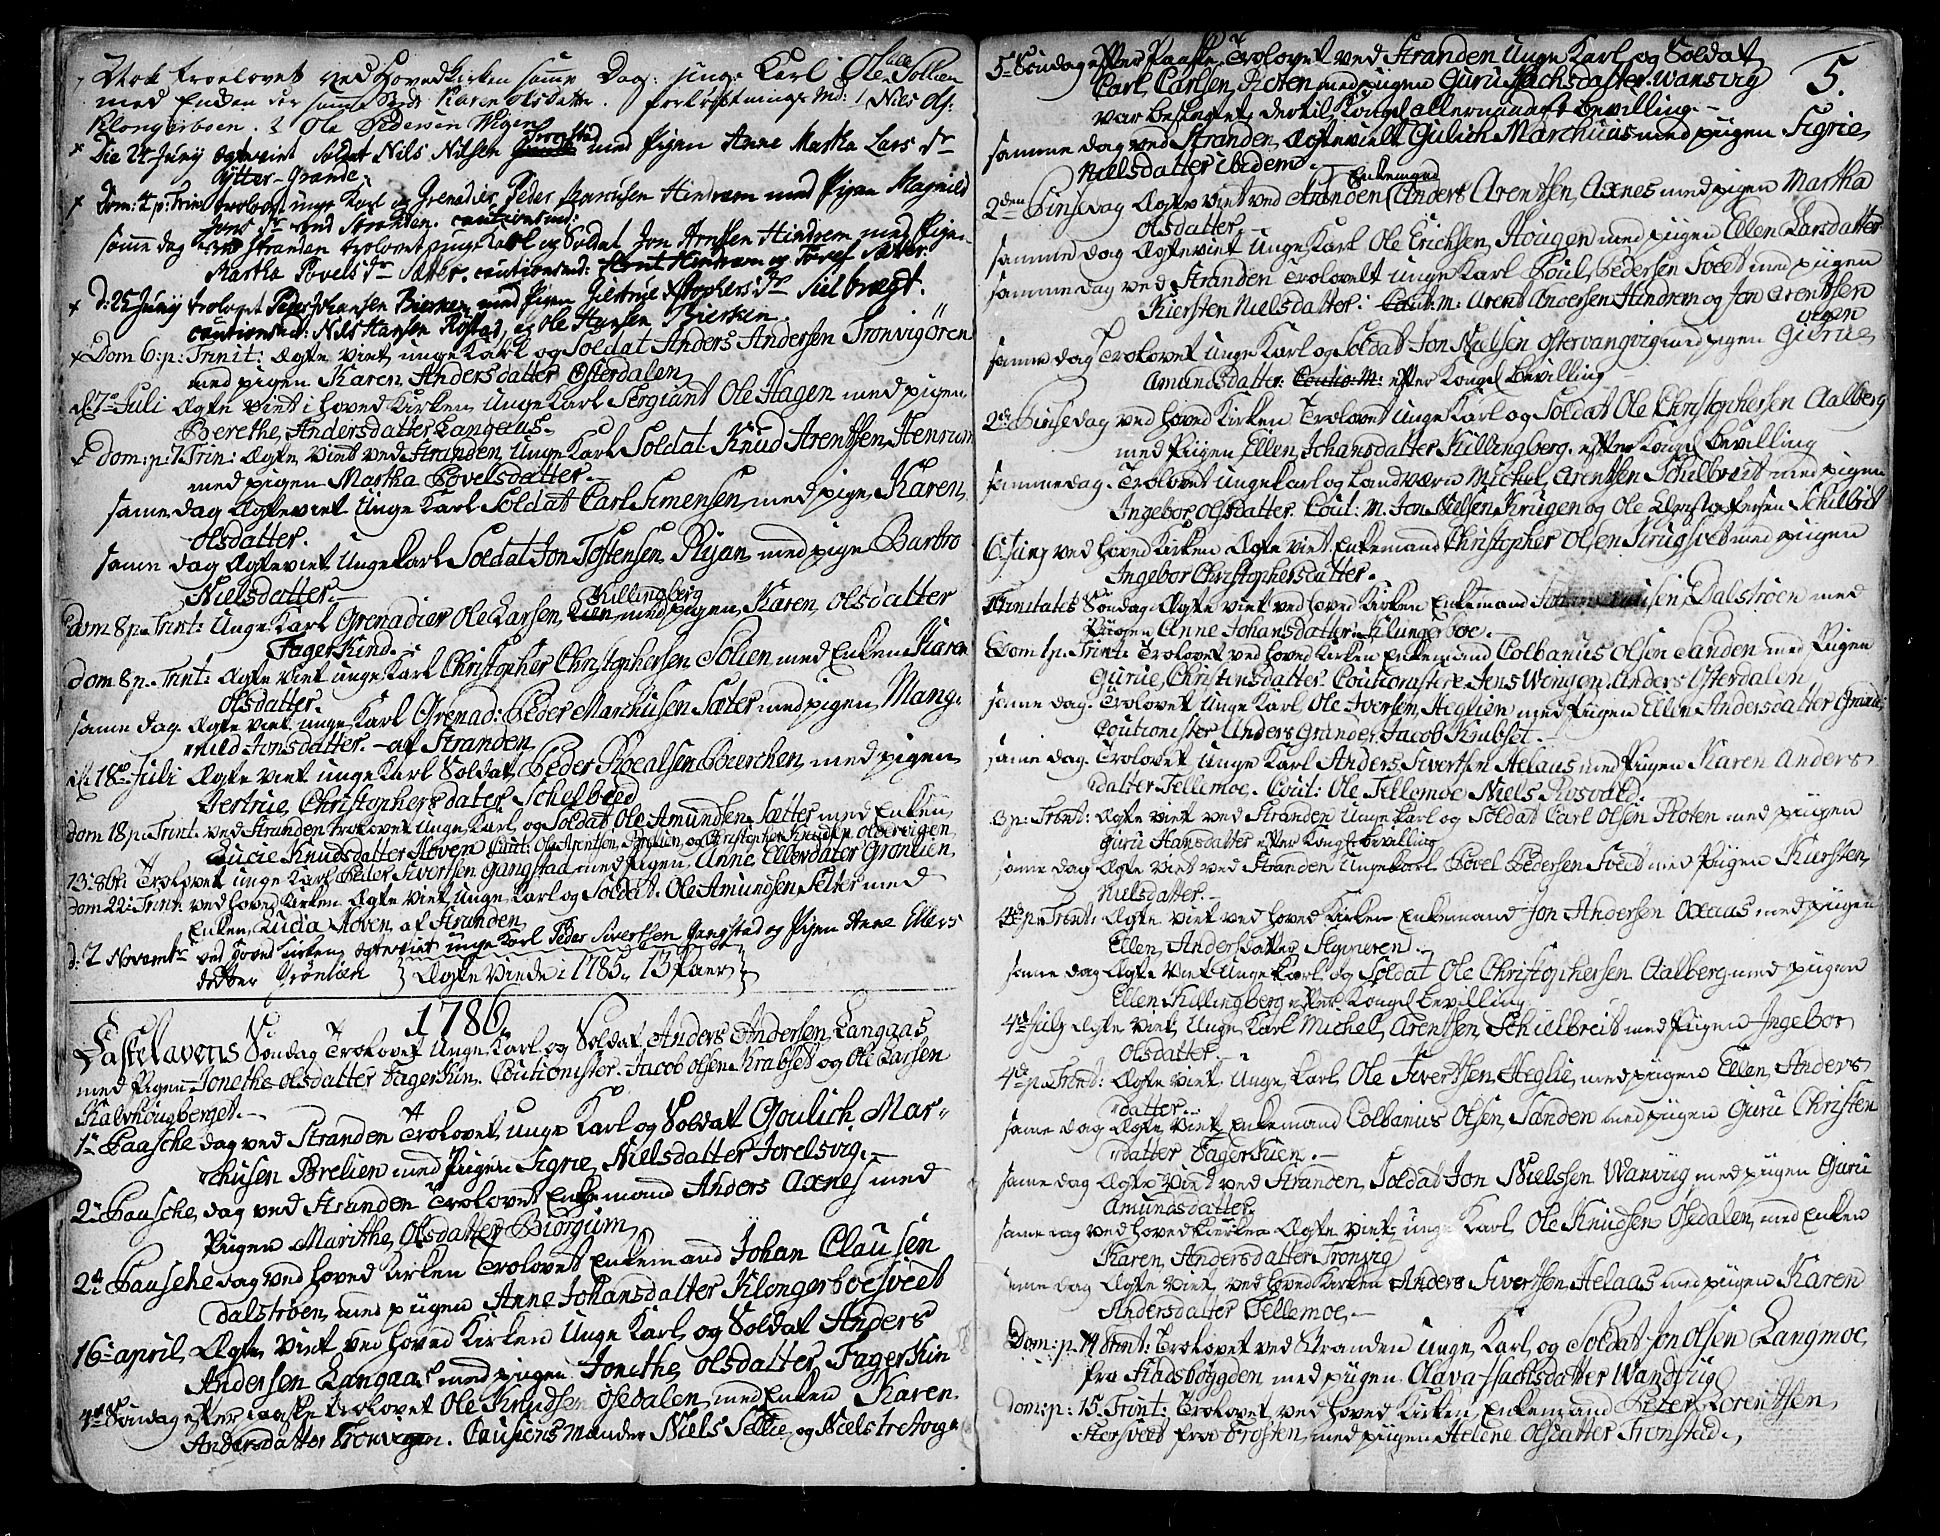 Nok troelovet ved Hovedkirken samme Dag: unge Karl Ole Sollien
med Enken ibr samme Karen Olsdatter. forlovtnings Md: 1 Nils Ols:
Klongerboen. 2 Ole Pedersen Wigen
Die 24 Juny ægteviet Soldat Nils Nilsen Tronstad med Pigen Anne Martha Lars Dr
Rytter-Grande.
Dom: 4 p: Trin: trolovet unge Karl og Grenadier Peder Marcusen Hindrem med Pigen Magnild
Jons Dr ved Stranden. cautionsmd:
samme dag ved Stranden trolovet unge Karl og Soldat Jon Arntsen Hindrem med Pigen
Martha Povels Dr Sætter. cautionsmd: Arent Hindrem og Povel Sætter.
D: 25 Juny trolovet Peder Johansen Bierken med Pigen Giertrue Xstophers Dr Sielbregt.
cautionsmd: Nils Hansen Rostad, og Ole Hansen Bierken.
Dom 6: p: Trinit: Ægte viet unge Karl og Soldat Anders Andersen Tronvigören
med pigen Karen Andersdatter Österdalen
d: 7de Juli Ægte viet i hoved Kirken unge Karl Sergiant Ole Hagen med pigen
Berethe Andersdatter Langaas.
dom: p: 7 Trin: Ægte viet ved Stranden, unge Karl Soldat Knud Arentsen Henrum
med pigen Martha Povelsdatter.
same dag Ægteviet unge Karl Soldat Carl Simensen med pige Karen
Olsdatter.
same dag Ægteviet unge Karl Soldat Jon Tostensen Ryan med pige Barbro
Nielsdatter.
Killingberg
Dom 8 p. Trint: unge Karl Grenadier Ole Larsen Lien med pigen Karen Olsdatter
Fagerkind.
Dom 8 p. Trint: Ægte viet unge Karl Christopher Christophersen Solien med Enken Karen
Olsdatter.
same dag. Ægte viet unge Karl Grenad: Peder Marchusen Sæter med pigen Mang-
nild Jonsdatter. - af Stranden
d. 18de Juli Ægte viet unge Karl Soldat Peder Roealsen Bierchen med pigen
Giertrue Christophersdater Schelbreed
Dom 18 p. Trint. ved Stranden trolovet unge Karl og Soldat Ole Amundsen Sætter med Enken
Lucie Knudsdatter Moven Caut: Ole Arentsen Brelien og Christopher Knudsen Olderwigen
13. 8bri Trolovet unge Karl Peder Sivertsen Gangstad med pigen Anne Ellersdater Grønlien
Dom 22: Trint ved hoved Kirken Ægte viet unge Karl og Soldat Ole Amundsen Setter med
Enken Lucia Moven af Stranden
d: 2 Novembr ved Hoved Kirken ægteviet unge Karl Peder Sivertsen Gangstad og Pigen Anne Ellers
datter Grönlien } Ægte viede i 1785. 13 Paer }
1786
Fastelavens Söndag Trolovet unge Karl og Soldat Anders Andersen Langaas
med Pigen Jonethe Olsdatter Fagerkin. Coutionister. Jacob Olsen Krabset og Ole Larsen
Kalvhougberget.
1te Paasche dag ved Stranden Trolovet unge Karl og Soldat Goulich Mar-
chusen Brelien med Pigen Sigrie Nielsdatter Forelsvig.
2den Pausche dag ved Stranden Trolovet Enkemand Anders Axnes med
Pugen Marithe Olsdatter Biörgum
2den Pausche dag ved hoved Kirken Trolovet Enkemand Johan Clausen
Dalströen med pügen Anne Johansdatter Klongerboesveet
16 april Ægte viet ved hoved Kirken unge Karl og Soldat Anders
Andersen Langaas med pigen Jonethe Olsdatter Fagerkin
4de Söndag efter paaske trolovet Ole Knudsen Osedalen med Enken Karen
Andersdatter Tronvigen. Causionsmænder Niels Sellie og Niels
5.
5te Söndag efter Paaske Trolovet ved Stranden unge Karl og Soldat
Carl Carlsen Roten med pugen Guru Isachsdatter Wansvig
var beslegtet dertil Kongel allernaadigst bevilling.
samme dag ved Stranden Ægteviett Gulich Marchuus med pugen Sigrie
Nielsdatter ibidem.
2den Pinsedag Ægte viet ved Stranden Enkemand Anders Arentsen Axnes med pigen Martha
Olsdatter.
samme dag Ægteviet unge Karl Ole Erichsen Hougen med pugen Ellen Larsdatter
samme dag ved Stranden Trolovelt unge Karl Poul Pedersen Sveet med pügen
Kiersten Nielsdatter: Cout: M: Arent Andersen Hindrem og Jon Arentsen
ygen
samme dag Trolovet unge Karl og Soldat Jon Nielsen Ostervangvig med pigen Gurue
Amundsdatter: Coutio: M: efter Kongel bevilling
2de Pinsedag ved hoved Kirken Trolovet unge Karl og Soldat Ole Christophersen Aalberg
med Pügen Ellen Johansdatter Killingberg. efter Kongel bevilling
samme dag. Trolovet unge Karl og Landværn Michel Arentsen Schielbreit med pigen
Ingebor Olsdatter. Cout: M. Jon Nielsen Krugen og Ole Christophersen Schilbret
6 Juny ved hoved Kirken Ægte viet Enkemand Christopher Olsen Krugsvet med pügen
Ingebor Christophersdatter.
Trinitatis Söndag Ægte viet ved hoved Kirken Enkemand Dalströen med
Pügen Anne Johansdatter Klungerboe.
Dom 1 p. Trint: Trolovet ved hoved Kirken Enkemand Colbanus Olsen Sanden med Pigen
Gurue Christensdatter. Coutionistere Jens Wongen. Anders Österdalen
same dag. Trolovet unge Karl Ole Iversen Heglien med Pugen Ellen Andersdatter Grande
Coutionister Anders Grande, Jacob Krubset.
same dag. Trolovet unge Karl Anders Sivertsen Aelaus med Pügen Karen Anders
datter Tellemoe. Cout: Ole Tellemoe Niels Rosvold.
3 p: Trint: Ægte viet ved Stranden unge Karl og Soldat Carl Olsen Roten med pigen
Guru Hansdatter efter Kongl: bevilling
same dag Ægte viet ved Stranden unge Karl Povel Pedersen Sveet med Pügen Kiersten
Nielsdatter.
p. Trint: Ægte viet ved hoved Kirken Enkemand Jon Andersen Oxaas med pügen
Ellen Andersdatter
same dag Ægte viet unge Karl og Soldat Ole Christophersen Aalberg med pügen
Ellen Killingberg efter Kongel bevilling
4de July Ægte viet unge Karl Michel Arentsen Schielbreit med Pugen Ingebor
Olsdatter.
4de p. Trint: Ægte viet unge Karl Ole Sivertsen Heglie med pügen Ellen Anders
datter.
same dag Ægte viet Enkemand Colbanius Olsen Sanden med pügen Guru Christen
datter Fagerkien.
same dag Ægte viet ved Stranden Soldat Jon Nielssen Wanvig med pügen Guru
Amundsdatter.
same dag ved hoved Kierken Ægte viet unge Karl Ole Knudsen Osedalen med Enken
Karen Andersdatter Tronvig
same dag Ægte viet ved hoved Kirken Anders Sivertsen Aelaas med pügen Karen
Andersdatter Tellemoe.
Dom: p. 14 Trint: Trolovet ved Stranden unge Karl og Soldat Jon Olsen Langmoe
fra Stadsböygden med pügen Olava Isachsdatter Wandsvig
Dom: p: 15 Trint: Trolovet ved hoved Kirken Enkemand Peter Lorentsen
Hersveet fra Frosten med pügen Helene Olsdatter Tronstad.